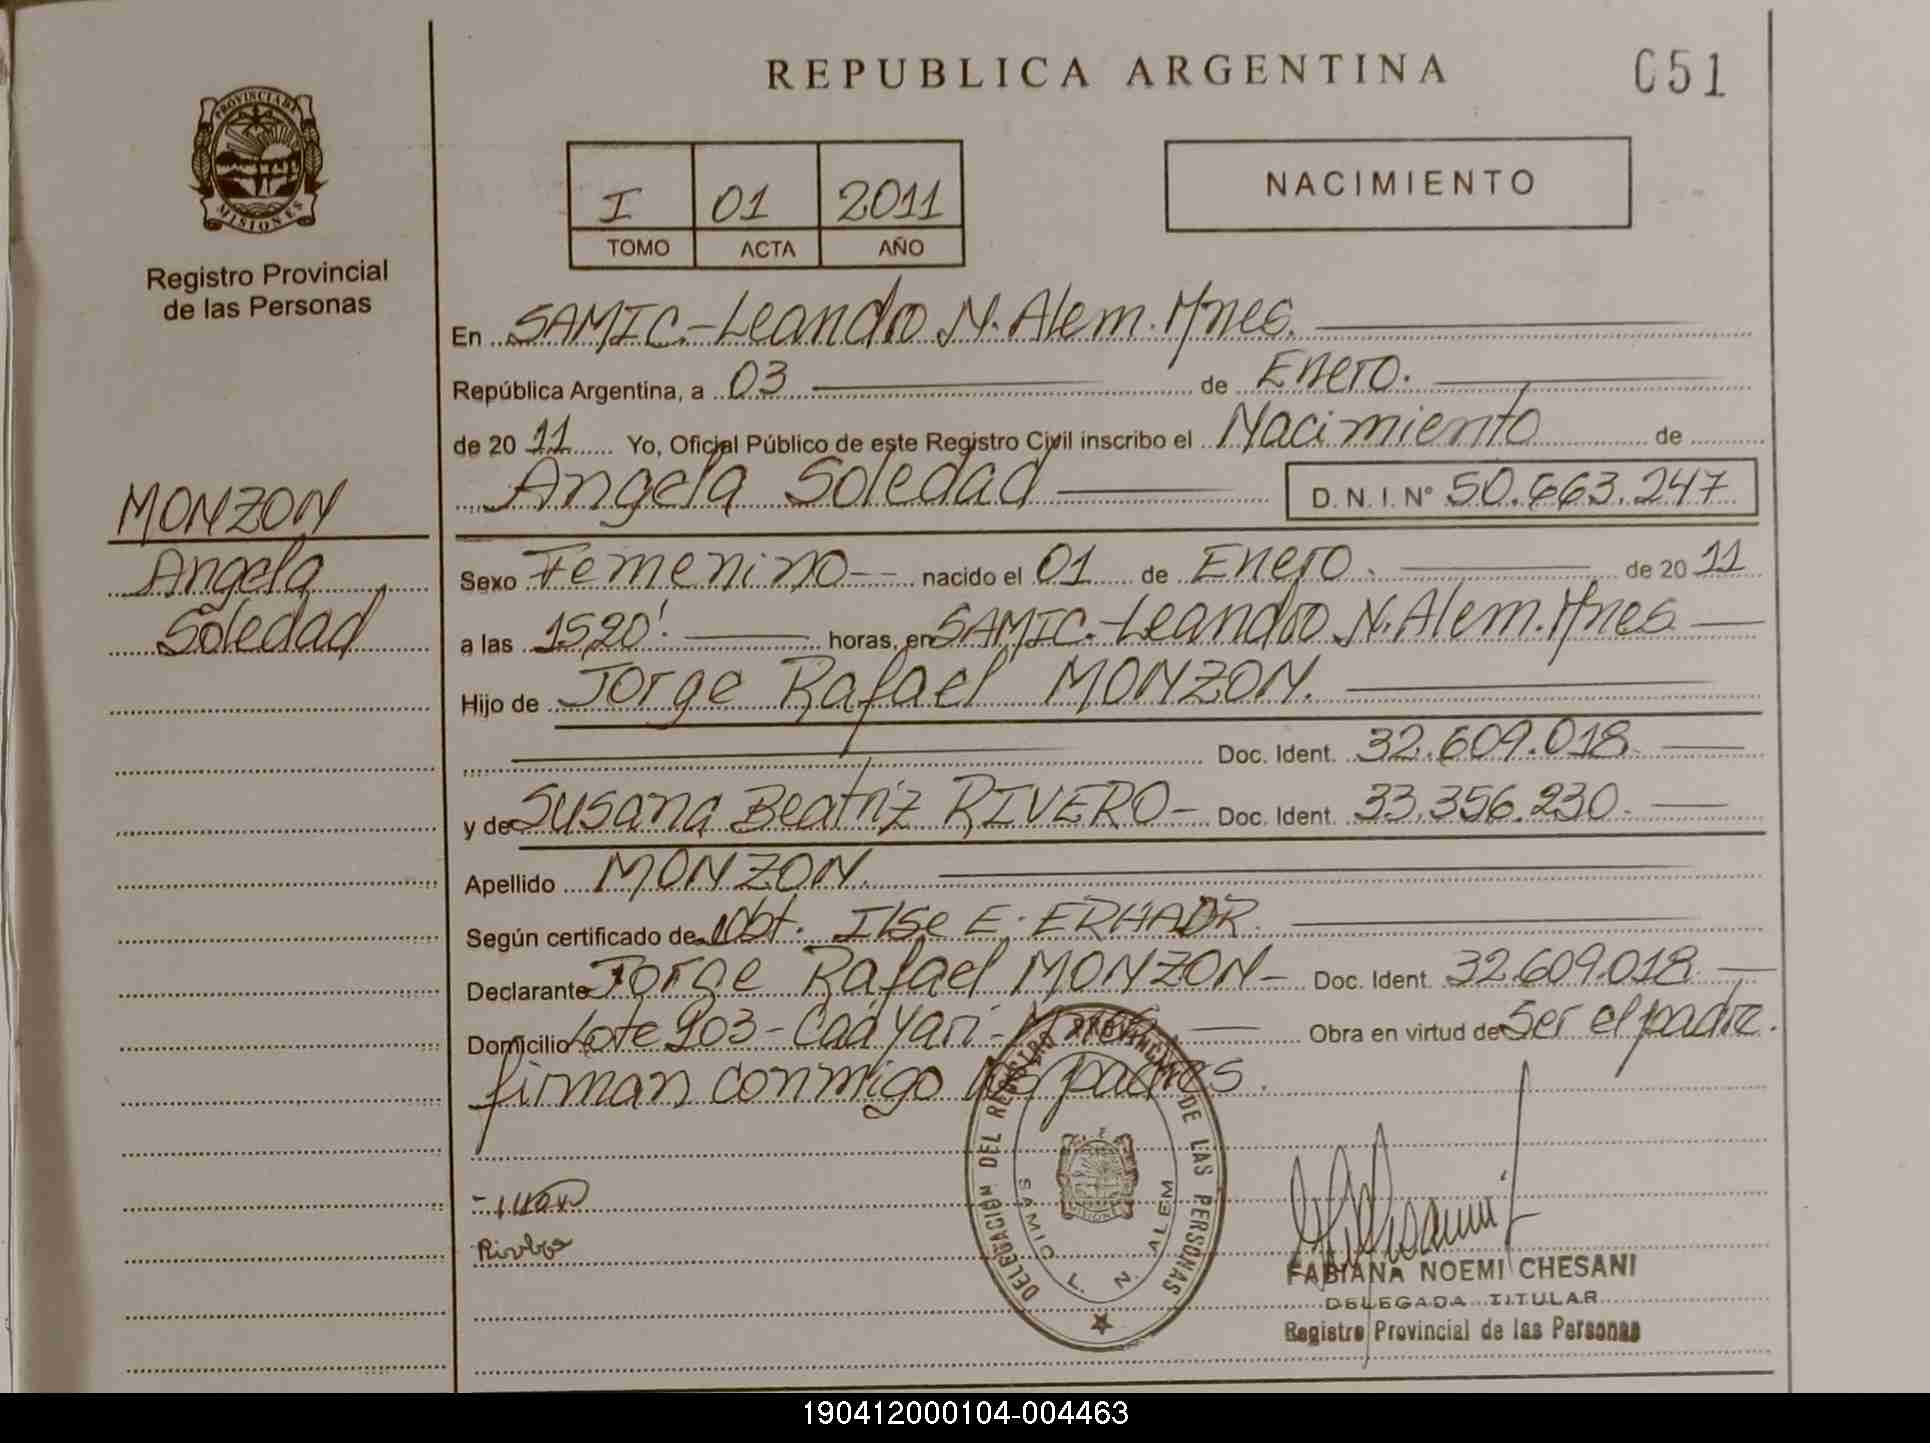 REPUBLICA ARGENTINA
051
PROVINCIA DE
MISIONES
Registro Provincial
de las Personas
I 01 2011
TOMO ACTA AÑO
NACIMIENTO
En SAMIC.-Leandro N. Alem. Mnes.
República Argentina, a 03 de Enero.
de 20 11 Yo, Oficial Público de este Registro Civil inscribo el Nacimiento de
Angela Soledad D. N. I. Nº 50.663.247
MONZON
Angela
Soledad
Sexo Femenino nacido el 01 de Enero. de 20 11
a las 1520'. horas, en SAMIC.-Leandro N. Alem. Mnes
Hijo de Jorge Rafael MONZON.
Doc. Ident. 32.609.018
y de Susana Beatriz RIVERO- Doc. Ident. 33.356.230.
Apellido MONZON.
Según certificado de Obt. Ilse E. ERHADR.
Declarante Jorge Rafael MONZON- Doc. Ident. 32.609.018
Domicilio Lote 203-Caá Yari- Obra en virtud de Ser el padre.
firman conmigo los padres.
DELEGACION DEL REGISTRO PROVINCIAL DE LAS PERSONAS
SAMIC L. N. ALEM
MISIONES
FABIANA NOEMI CHESANI
DELEGADA TITULAR
Registro Provincial de las Personas
190412000104-004463